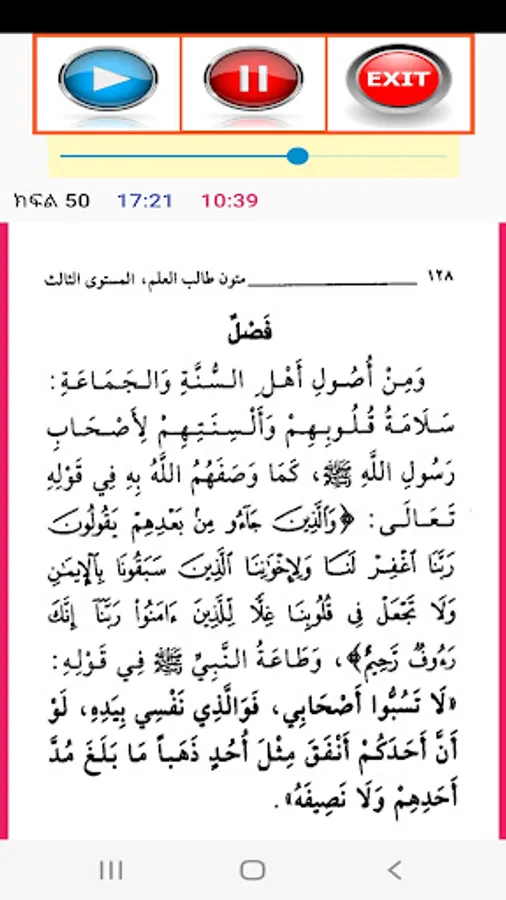 EXIT
ክፍል 50 17:21 10:39
١٢٨ متون طالب العلم، المستوى الثالث
فَصْلٌ
وَمِنْ أُصُولِ أَهْلِ السُّنَّةِ وَالْجَمَاعَةِ:
سَلَامَةُ قُلُوبِهِمْ وَأَلْسِنَتِهِمْ لِأَصْحَابِ
رَسُولِ اللَّهِ ﷺ، كَمَا وَصَفَهُمُ اللَّهُ بِهِ فِي قَوْلِهِ
تَعَالَى: ﴿وَالَّذِينَ جَاءُو مِنْ بَعْدِهِمْ يَقُولُونَ
رَبَّنَا اغْفِرْ لَنَا وَلِإِخْوَانِنَا الَّذِينَ سَبَقُونَا بِالْإِيمَانِ
وَلَا تَجْعَلْ فِي قُلُوبِنَا غِلًّا لِلَّذِينَ آمَنُوا رَبَّنَا إِنَّكَ
رَءُوفٌ رَّحِيمٌ﴾، وَطَاعَةُ النَّبِيِّ ﷺ فِي قَوْلِهِ:
«لَا تَسُبُّوا أَصْحَابِي، فَوَالَّذِي نَفْسِي بِيَدِهِ، لَوْ
أَنَّ أَحَدَكُمْ أَنْفَقَ مِثْلَ أُحُدٍ ذَهَباً مَا بَلَغَ مُدَّ
أَحَدِهِمْ وَلَا نَصِيفَهُ».